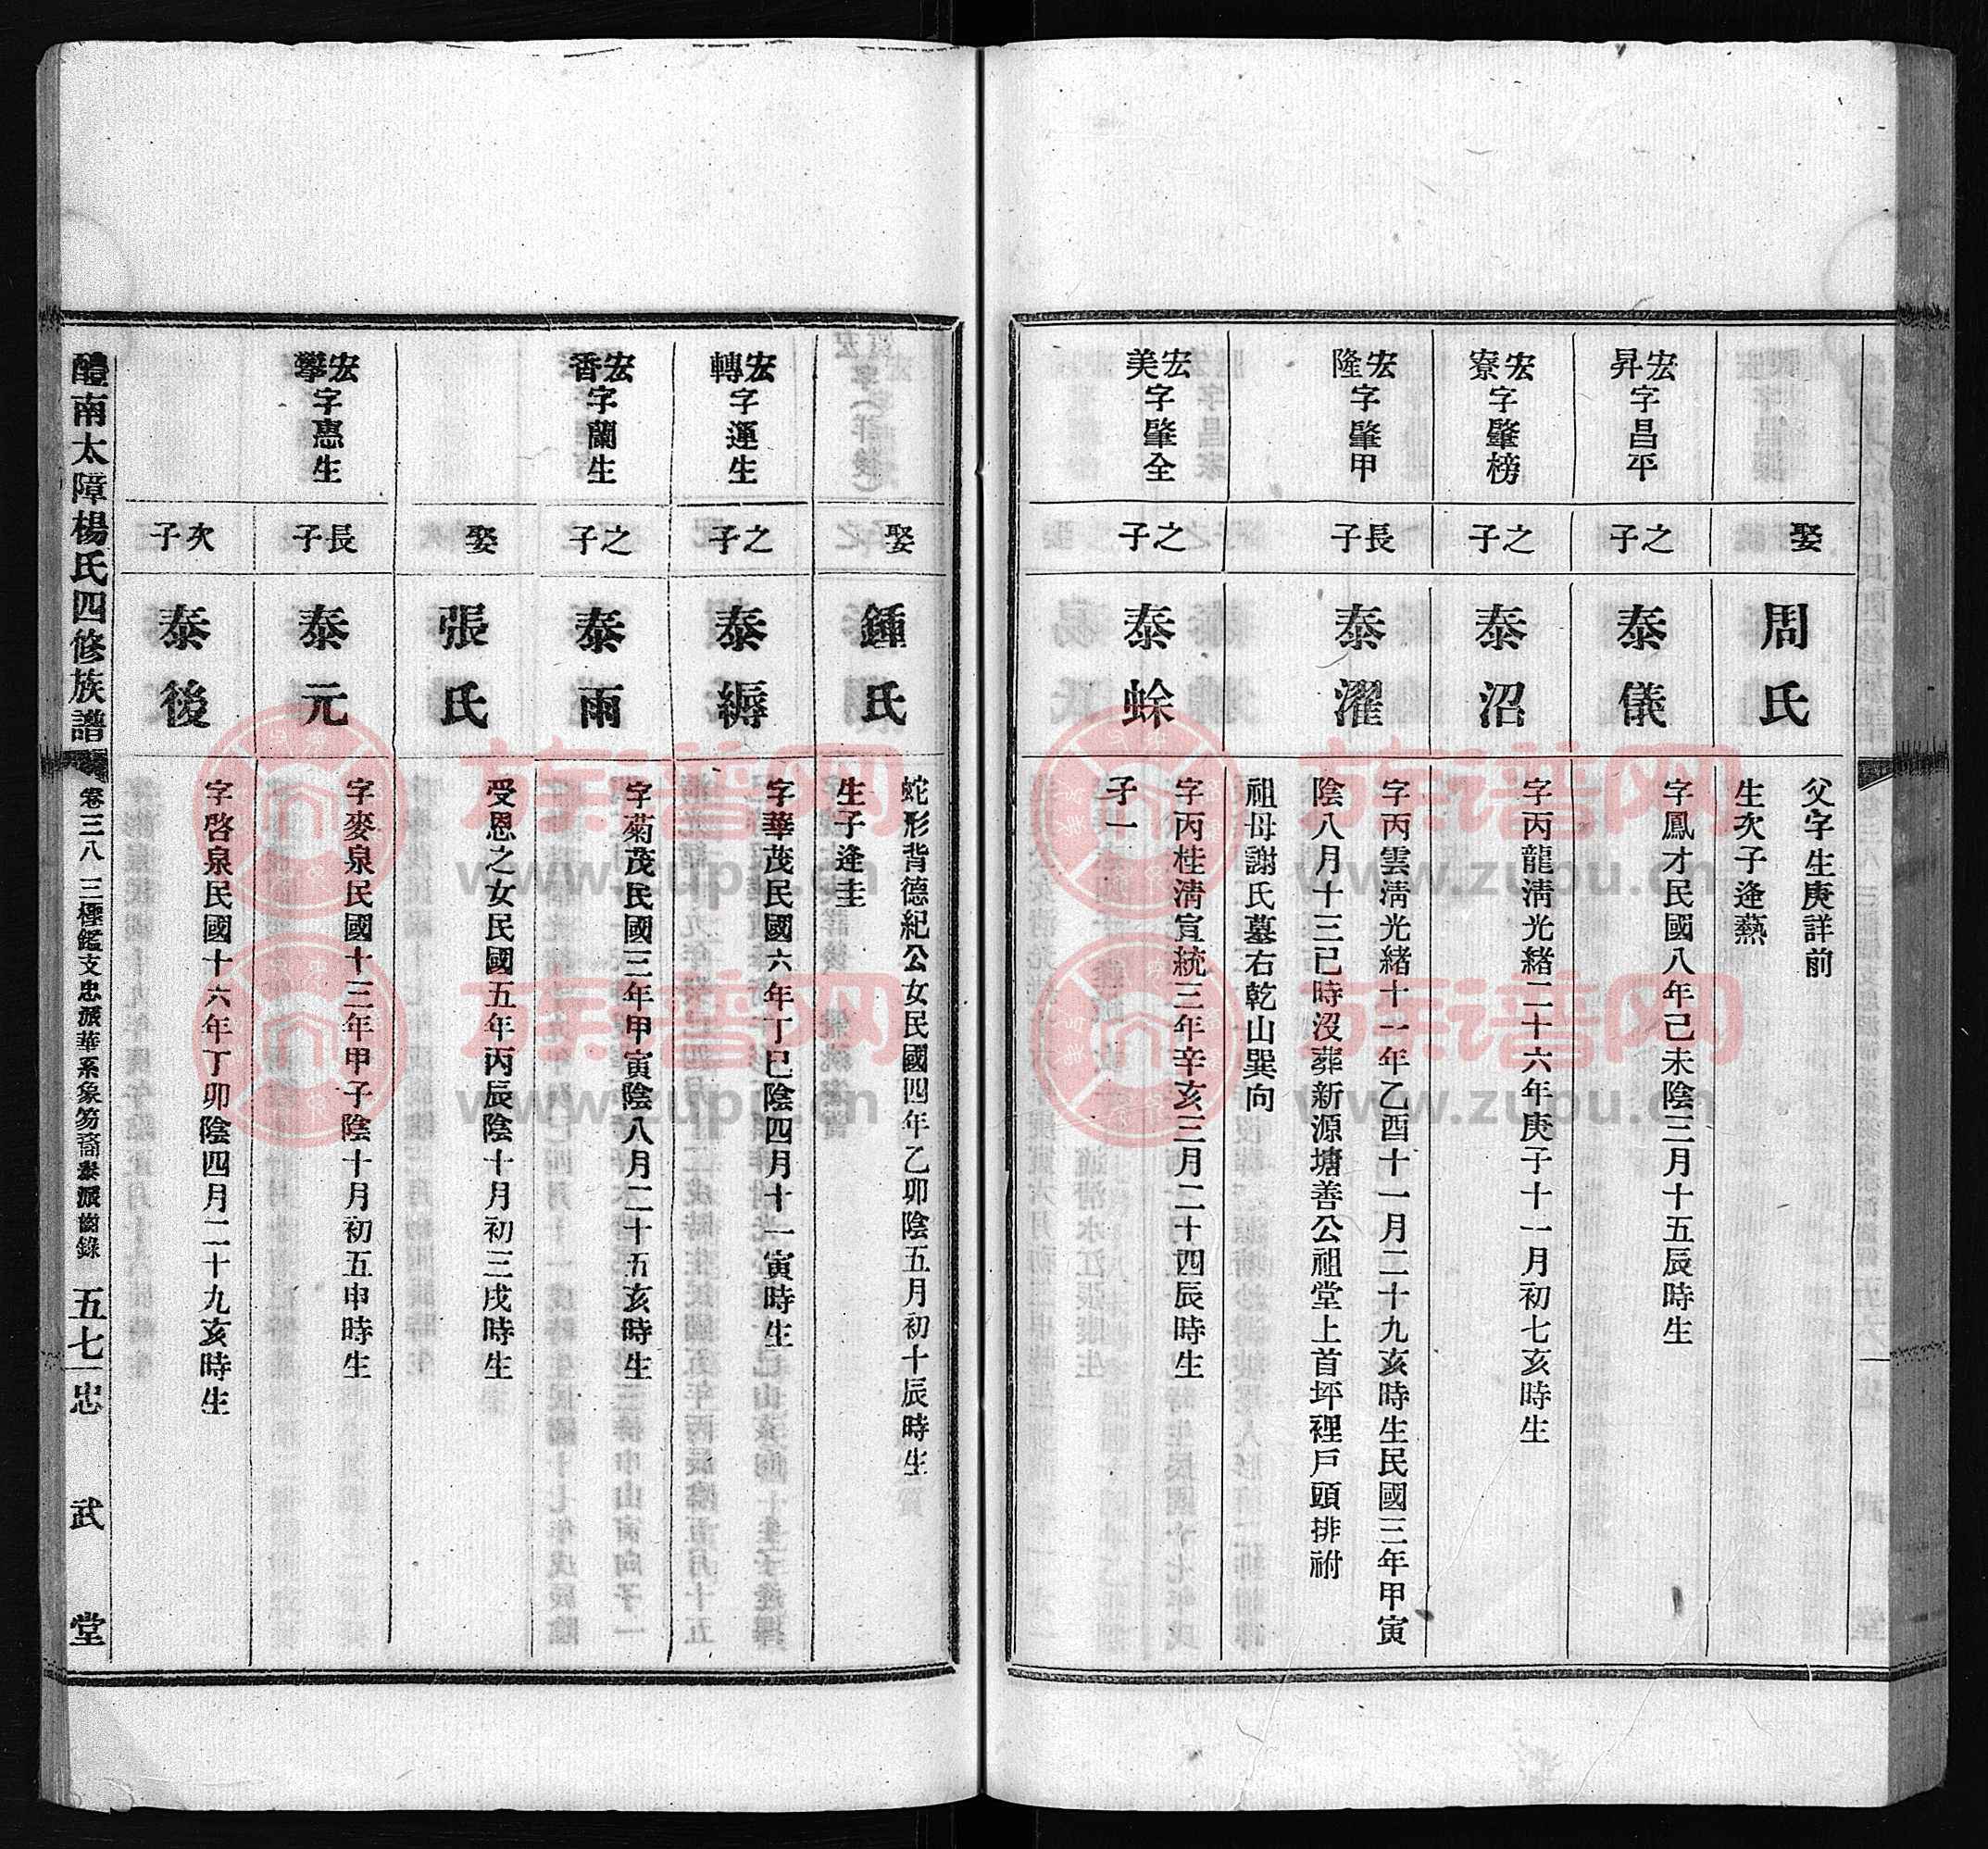 娶
周氏
父字生庚詳前
生次子逢熱
宏昇字昌平
之子
泰儀
字鳳才民國八年己未陰三月十五辰時生
宏寮字肇榜
之子
泰沼
字丙龍清光緒二十六年庚子十一月初七亥時生
宏隆字肇甲
長子
泰濯
字丙雲清光緒十一年乙酉十一月二十九亥時生民國三年甲寅
陰八月十三巳時沒葬新源塘善公祖堂上首坪裡戶頭排祔
祖母謝氏墓右乾山巽向
宏美字肇全
之子
泰蜍
字丙桂清宣統三年辛亥三月二十四辰時生
子一
娶
鍾氏
蛇形背德紀公女民國四年乙卯陰五月初十辰時生
生子逢圭
宏轉字運生
之子
泰縟
字華茂民國六年丁巳陰四月十一寅時生
宏香字蘭生
之子
泰雨
字菊茂民國三年甲寅陰八月二十五亥時生
娶
張氏
受恩之女民國五年丙辰陰十月初三戌時生
宏攀字惪生
長子
泰元
字麥泉民國十三年甲子陰十月初五申時生
次子
泰後
字啓泉民國十六年丁卯陰四月二十九亥時生
醴南太障楊氏四修族譜
卷三八
三極鑑支忠派華系象笏裔泰派齒錄
五七
忠武堂
族譜网
www.zupu.cn
族譜网
www.zupu.cn
族譜网
www.zupu.cn
族譜网
www.zupu.cn